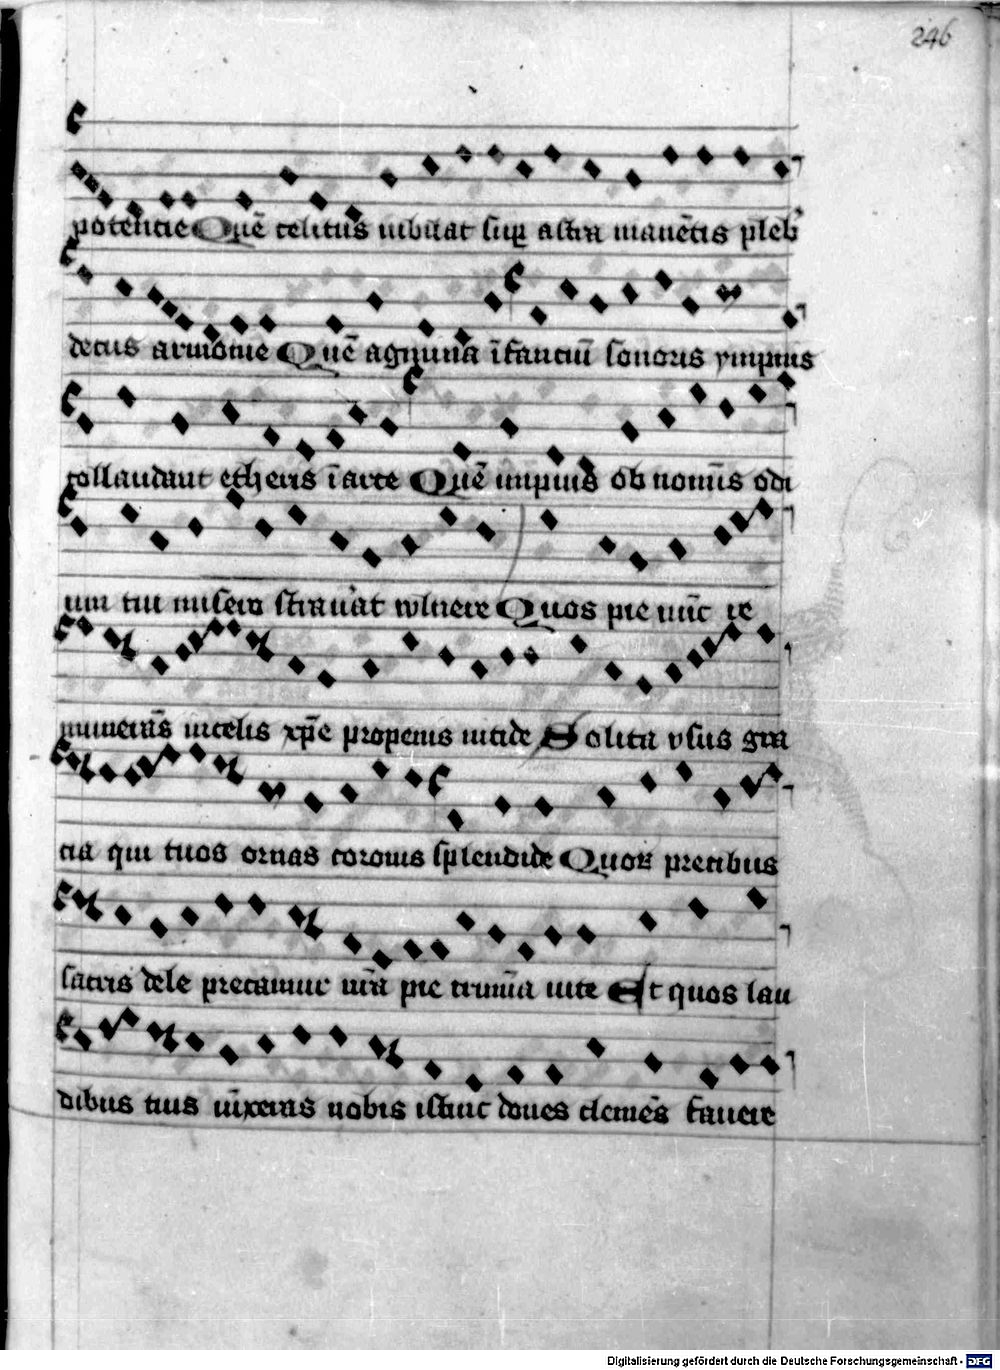 246
potencie Quē celitus iubilat suꝑ astra manētis plebs
decus armonie Quē agmina īfanciū sonoris ympnis
collaudant etheris ī arce Quē impius ob nominis odi
um tui misero strauat wlnere Quos pie nunc re
muneras in celis xp̄e propenis nitide Solita vsus gra
cia qui tuos ornas coronis splendide Quoꝝ precibus
sacris dele precamur nr̄a pie crimina vite Et quos lau
dibus tuis iūxeras nobis istinc dones clemēs fauere
Digitalisierung gefördert durch die Deutsche Forschungsgemeinschaft - DFG